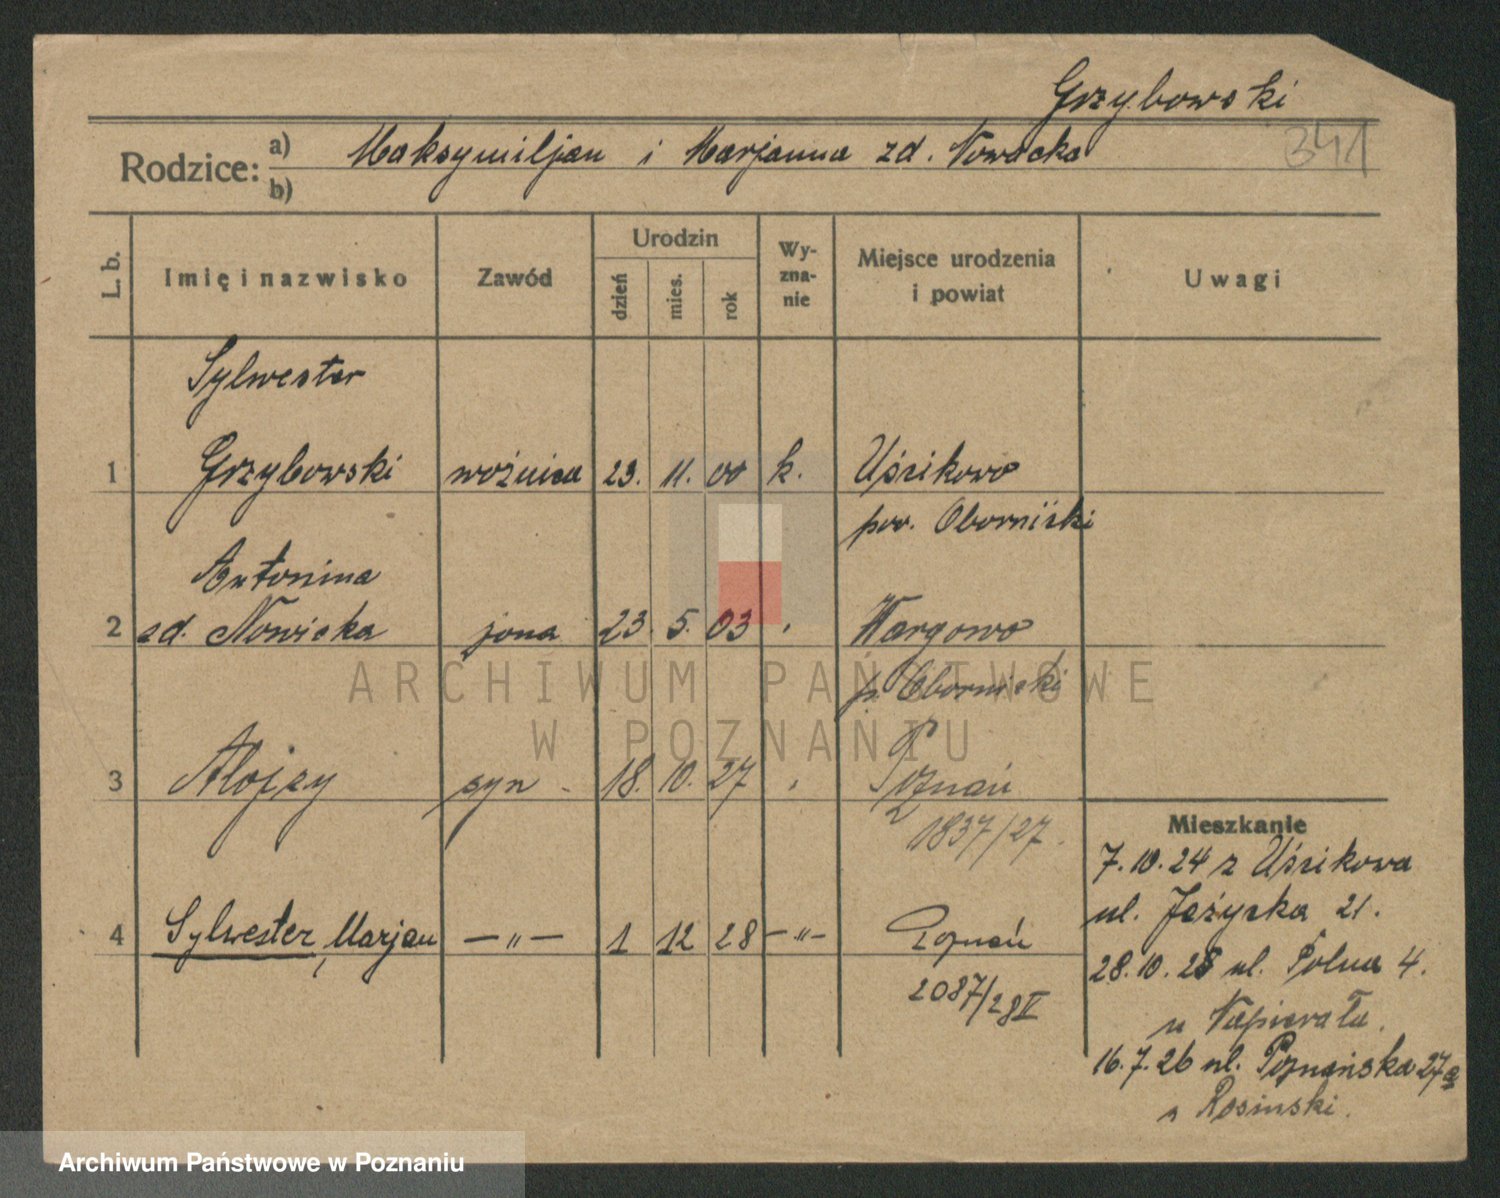 Grzybowski
341
Rodzice: a) Maksymiljan i Marjanna zd. Nowacka
b)
L. b.
Imię i nazwisko
Zawód
Urodzin
dzień
mies.
rok
Wy-
zna-
nie
Miejsce urodzenia
i powiat
Uwagi
Sylwester
1 Grzybowski woźnica 23. 11. 00 k. Uścikowo
pow. Obornicki
Antonina
2 zd. Nowicka żona 23. 5. 03 Wargowo
p. Obornicki
3 Alojzy syn 18. 10. 27 Poznań
1837/27.
4 Sylwester, Marjan —"— 1 12 28 —"— Poznań
2087/28 V
Mieszkanie
7.10.24 z Uścikowa
ul. Jeżycka 21.
28.10.25 ul. Polna 4.
u Napierała.
16.7.26 ul. Poznańska 27a
Rosinski.
ARCHIWUM PAŃSTWOWE
W POZNANIU
Archiwum Państwowe w Poznaniu